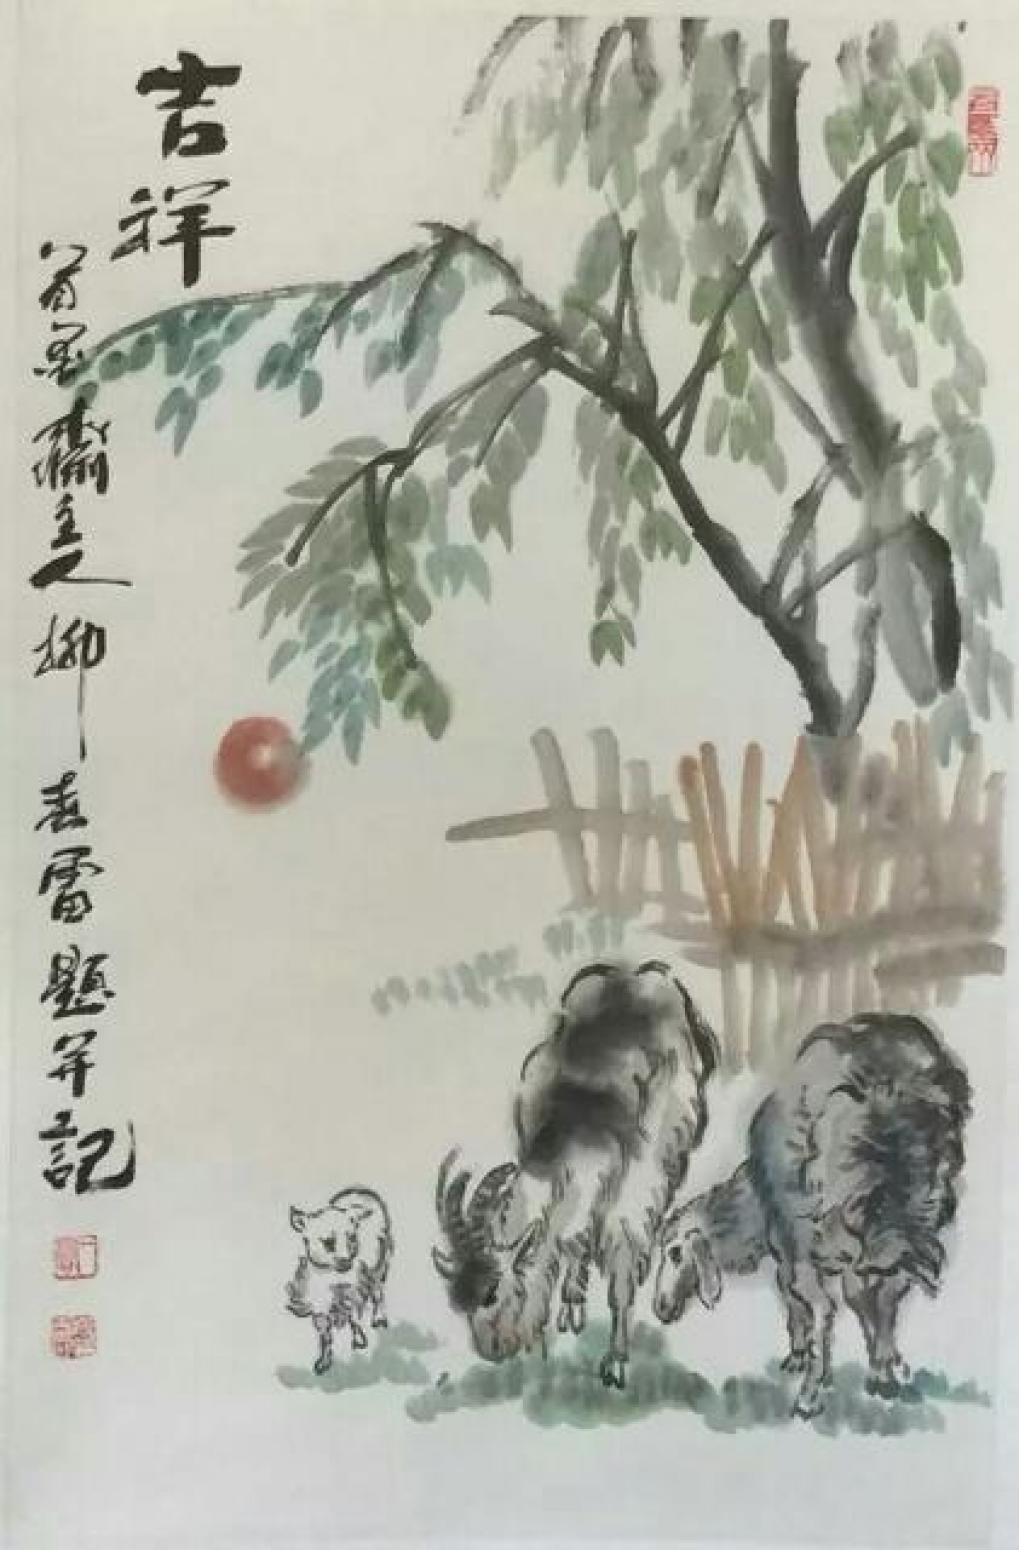 吉祥
墨齋主人柳春雷題并記